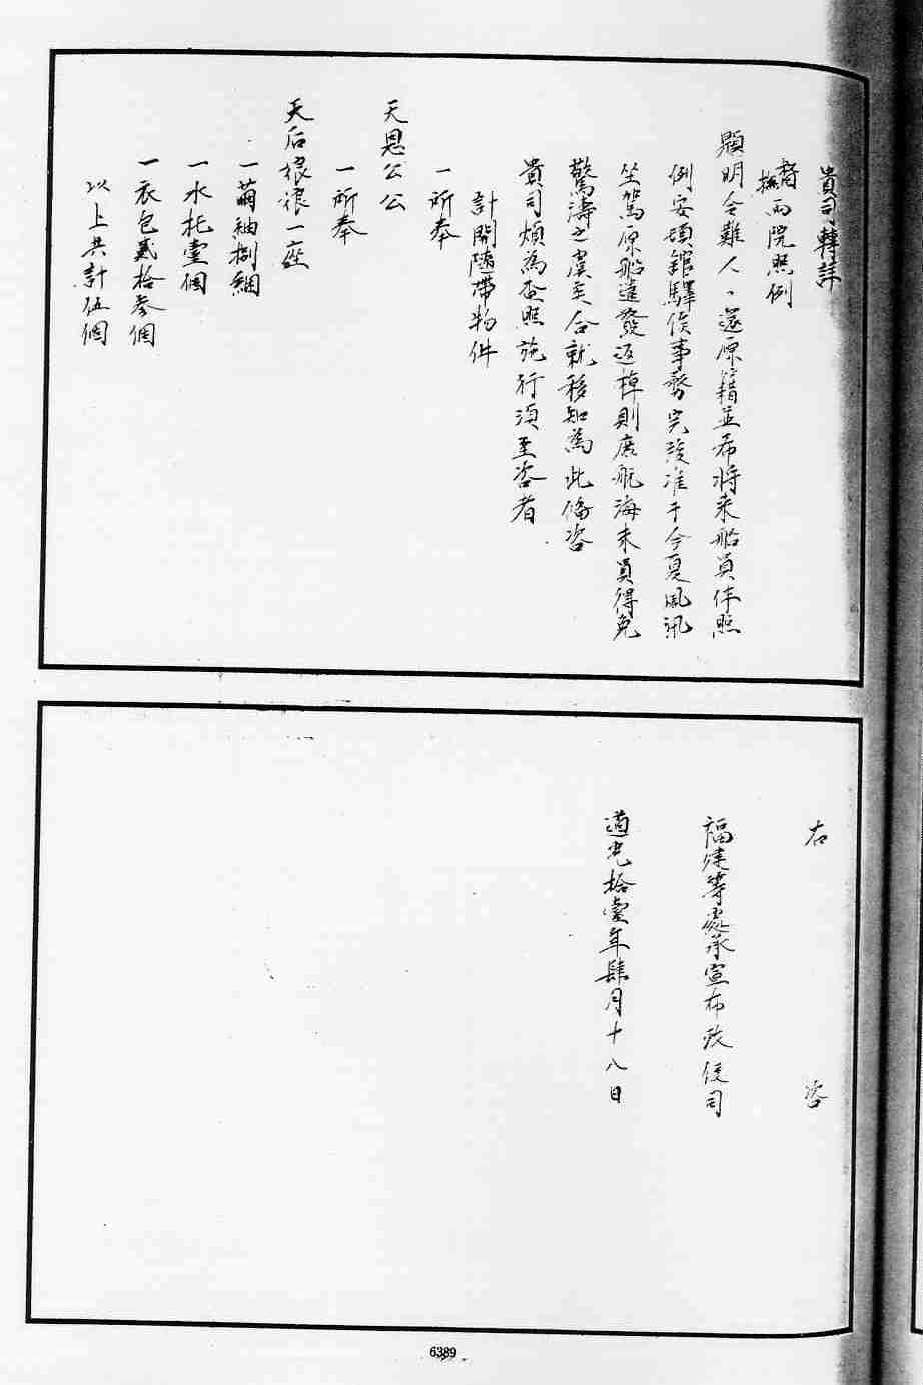 貴司轉詳
督撫兩院照例
題明令難人、遞原籍並希將來船員伴照
例安頓館驛俟事務完竣准于今夏風汛
坐駕原船遣發返棹則庶航海末員得免
驚濤之虞矣合就移知為此俻咨
貴司煩為查照施行須至咨者
計開隨帶物件
一所奉
天恩公公
一所奉
天后娘娘一座
一繭紬捌綑
一水扥壹個
一衣包貳拾叁個
以上共計伍個
右 咨
福建等處承宣布政使司
道光拾壹年肆月十八日
6389